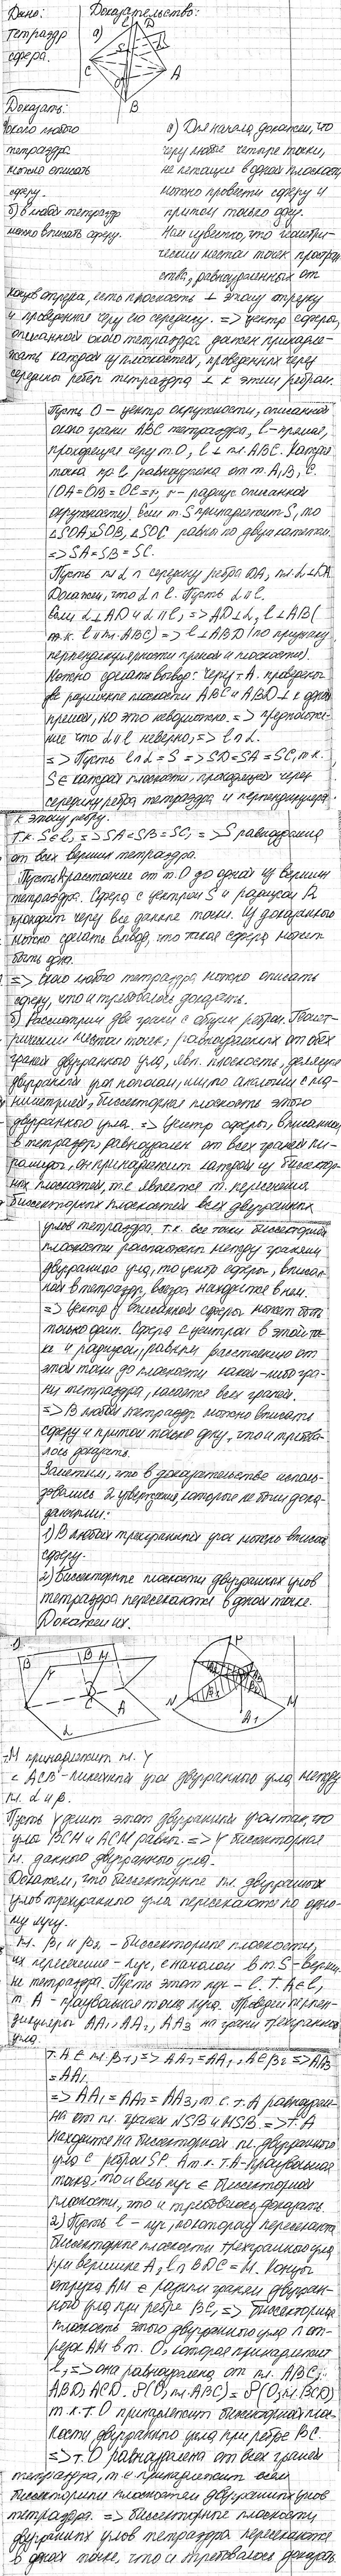 Дано:
тетраэдр
сфера.
Доказательство:
а)
D
C
A
O
B
Доказать:
около любого
тетраэдра
можно описать
сферу.
б) в любой тетраэдр
можно вписать сферу.
а) Для начала докажем, что
через любые четыре точки,
не лежащие в одной плоскости
можно провести сферу и
притом только одну.
Нам известно, что геометри-
ческим местом точек простран
ства, равноудаленных от
концов отрезка, есть плоскость ⊥ этому отрезку
и проведенная через его середину. => центр сферы,
описанной около тетраэдра должен принадле-
жать каждой из плоскостей, проведенных через
середины ребер тетраэдра ⊥ к этим ребрам.
Пусть O - центр окружности, описанной
около грани ABC тетраэдра, l - прямая,
проходящая через т.O, l ⊥ пл. ABC. Каждая
точка пр. l равноудалена от т. A, B, C.
(OA = OB = OC = r, r - радиус описанной
окружности). Если т. S принадлежит S, то
△SOA, △SOB, △SOC равны по двум катетам
=> SA = SB = SC.
Пусть пл α ∩ середину ребра DA, пл. α ⊥ DA
Докажем, что α ∩ l. Пусть α ∥ l.
Если α ⊥ AD и α ∥ l, => AD ⊥ l, l ⊥ AB (
т.к. l ⊥ пл. ABC) => l ⊥ ABD (по признаку
перпендикулярности прямой и плоскости).
Можно сделать вывод: через т. A проведены
две различные плоскости ABC и ABD ⊥ к одной
прямой, но это невозможно. => предположе-
ние что α ∥ l неверно, => l ∩ α.
=> Пусть l ∩ α = S => SD = SA = SC, т.к.
S ∈ каждой плоскости, проходящей через
середину ребра тетраэдра и перпендикулярна
к этому ребру.
т.к. S ∈ l, => SA = SB = SC, => S равноудалена
от всех вершин тетраэдра.
Пусть R расстояние от т. O до одной из вершин
тетраэдра. Сфера с центром S и радиусом R
проходит через все данные точки. Из доказанного
можно сделать вывод, что такая сфера может
быть одна.
=> Около любого тетраэдра можно описать
сферу, что и требовалось доказать.
б) Рассмотрим две грани с общим ребром. Геомет-
рическим местом точек, равноудаленных от обеих
граней двугранного угла, явл. плоскость, делящая
двугранный угол пополам, или по аналогии с пла-
ниметрией, биссекторная плоскость этого
двугранного угла. => Центр сферы, вписанной
в тетраэдр, равноудален от всех граней пи-
рамиды, он принадлежит каждой из биссектор-
ных плоскостей, т.е. является т. пересечения
биссекторных плоскостей всех двугранных
углов тетраэдра. т.к. все точки биссекторной
плоскости расположены между гранями
двугранного угла, то центр сферы, вписан-
ной в тетраэдр, всегда находится в нем.
=> Центр у вписанной сферы может быть
только один. Сфера с центром в этой точ-
ке и радиусом, равным расстоянию от
этой точки до плоскости какой-либо гра-
ни тетраэдра, касается всех граней.
=> В любой тетраэдр можно вписать
сферу и притом только одну, что и требова-
лось доказать.
Заметим, что в доказательстве исполь-
зовались 2 утверждения, которые не были дока-
занными:
1) В любой трехгранный угол можно вписать
сферу.
2) Биссекторные плоскости двугранных углов
тетраэдра пересекаются в одной точке.
Докажем их.
1)
β B M
γ
C A
α
P
N M
A1
M принадлежит пл. γ
∠ ACB - линейный угол двугранного угла между
пл. α и β.
Пусть γ делит этот двугранный угол так, что
углы BCM и ACM равны. => γ биссекторная
пл. данного двугранного угла.
Докажем, что биссекторные пл. двугранных
углов трехгранного угла пересекаются по одно-
му лучу.
Пл. β1 и β2 - биссекторные плоскости,
их пересечение - луч, с началом в т. S - верши-
не тетраэдра. Пусть этот луч - l. т. A ∈ l,
т. A - произвольная точка луча. Проведем перпен-
дикуляры AA1, AA2, AA3 на грани трехгранного
угла.
т. A ∈ пл. β1, => AA2 = AA1, A ∈ β2 => AA3
= AA1.
=> AA1 = AA2 = AA3, т.е. т. A равноудале-
на от пл. граней NSB и MSB. => т. A
находится на биссекторной пл. двугранного
угла с ребром SP. А т.к. т. A - произвольная
точка, то и весь луч ∈ биссекторной
плоскости, что и требовалось доказать.
2) Пусть l - луч, по которому пересекаются
биссекторные плоскости трехгранного угла
при вершине A, l ∩ BDC = M. Концы
отрезка AM ∈ разным граням двугран-
ного угла при ребре BC, => биссекторная
плоскость этого двугранного угла ∩ от-
резок AM в т. O, которая принадлежит
l, => она равноудалена от пл. ABC,
ABD, ACD. ρ(O; пл. ABC) = ρ(O; пл. BCD)
т.к. т. O принадлежит биссекторной плос-
кости двугранного угла при ребре BC.
=> т. O равноудалена от всех граней
тетраэдра, т.е. принадлежит всем
биссекторным плоскостям двугранных углов
тетраэдра. => биссекторные плоскости
двугранных углов тетраэдра пересекаются
в одной точке, что и требовалось доказать